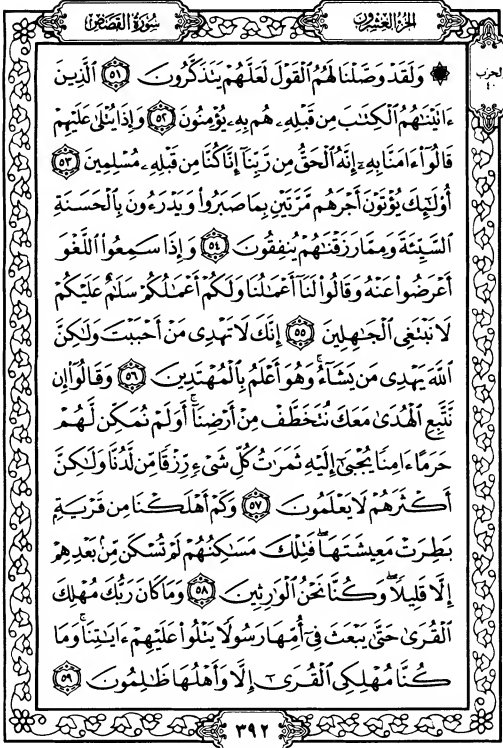 الجزء العشرون
سورة القصص
۞ وَلَقَدْ وَصَّلْنَا لَهُمُ ٱلْقَوْلَ لَعَلَّهُمْ يَتَذَكَّرُونَ ٥١ ٱلَّذِينَ
ءَاتَيْنَٰهُمُ ٱلْكِتَٰبَ مِن قَبْلِهِۦ هُم بِهِۦ يُؤْمِنُونَ ٥٢ وَإِذَا يُتْلَىٰ عَلَيْهِمْ
قَالُوٓا۟ ءَامَنَّا بِهِۦٓ إِنَّهُ ٱلْحَقُّ مِن رَّبِّنَآ إِنَّا كُنَّا مِن قَبْلِهِۦ مُسْلِمِينَ ٥٣
أُو۟لَٰٓئِكَ يُؤْتَوْنَ أَجْرَهُم مَّرَّتَيْنِ بِمَا صَبَرُوا۟ وَيَدْرَءُونَ بِٱلْحَسَنَةِ
ٱلسَّيِّئَةَ وَمِمَّا رَزَقْنَٰهُمْ يُنفِقُونَ ٥٤ وَإِذَا سَمِعُوا۟ ٱللَّغْوَ
أَعْرَضُوا۟ عَنْهُ وَقَالُوا۟ لَنَآ أَعْمَٰلُنَا وَلَكُمْ أَعْمَٰلُكُمْ سَلَٰمٌ عَلَيْكُمْ
لَا نَبْتَغِى ٱلْجَٰهِلِينَ ٥٥ إِنَّكَ لَا تَهْدِى مَنْ أَحْبَبْتَ وَلَٰكِنَّ
ٱللَّهَ يَهْدِى مَن يَشَآءُ ۚ وَهُوَ أَعْلَمُ بِٱلْمُهْتَدِينَ ٥٦ وَقَالُوٓا۟ إِن
نَّتَّبِعِ ٱلْهُدَىٰ مَعَكَ نُتَخَطَّفْ مِنْ أَرْضِنَآ ۚ أَوَلَمْ نُمَكِّن لَّهُمْ
حَرَمًا ءَامِنًا يُجْبَىٰٓ إِلَيْهِ ثَمَرَٰتُ كُلِّ شَىْءٍ رِّزْقًا مِّن لَّدُنَّا وَلَٰكِنَّ
أَكْثَرَهُمْ لَا يَعْلَمُونَ ٥٧ وَكَمْ أَهْلَكْنَا مِن قَرْيَةٍۭ
بَطِرَتْ مَعِيشَتَهَا ۖ فَتِلْكَ مَسَٰكِنُهُمْ لَمْ تُسْكَن مِّنۢ بَعْدِهِمْ
إِلَّا قَلِيلًا ۖ وَكُنَّا نَحْنُ ٱلْوَٰرِثِينَ ٥٨ وَمَا كَانَ رَبُّكَ مُهْلِكَ
ٱلْقُرَىٰ حَتَّىٰ يَبْعَثَ فِىٓ أُمِّهَا رَسُولًا يَتْلُوا۟ عَلَيْهِمْ ءَايَٰتِنَا ۚ وَمَا
كُنَّا مُهْلِكِى ٱلْقُرَىٰٓ إِلَّا وَأَهْلُهَا ظَٰلِمُونَ ٥٩
الحزب
٤٠
٣٩٢